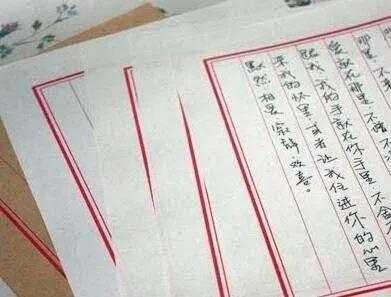 那里 不
爱就在那里 不增不
跟我 我的手就在你手里 不舍
来我的怀里 或者让我住进你的心里
默然 相爱 寂静 欢喜。